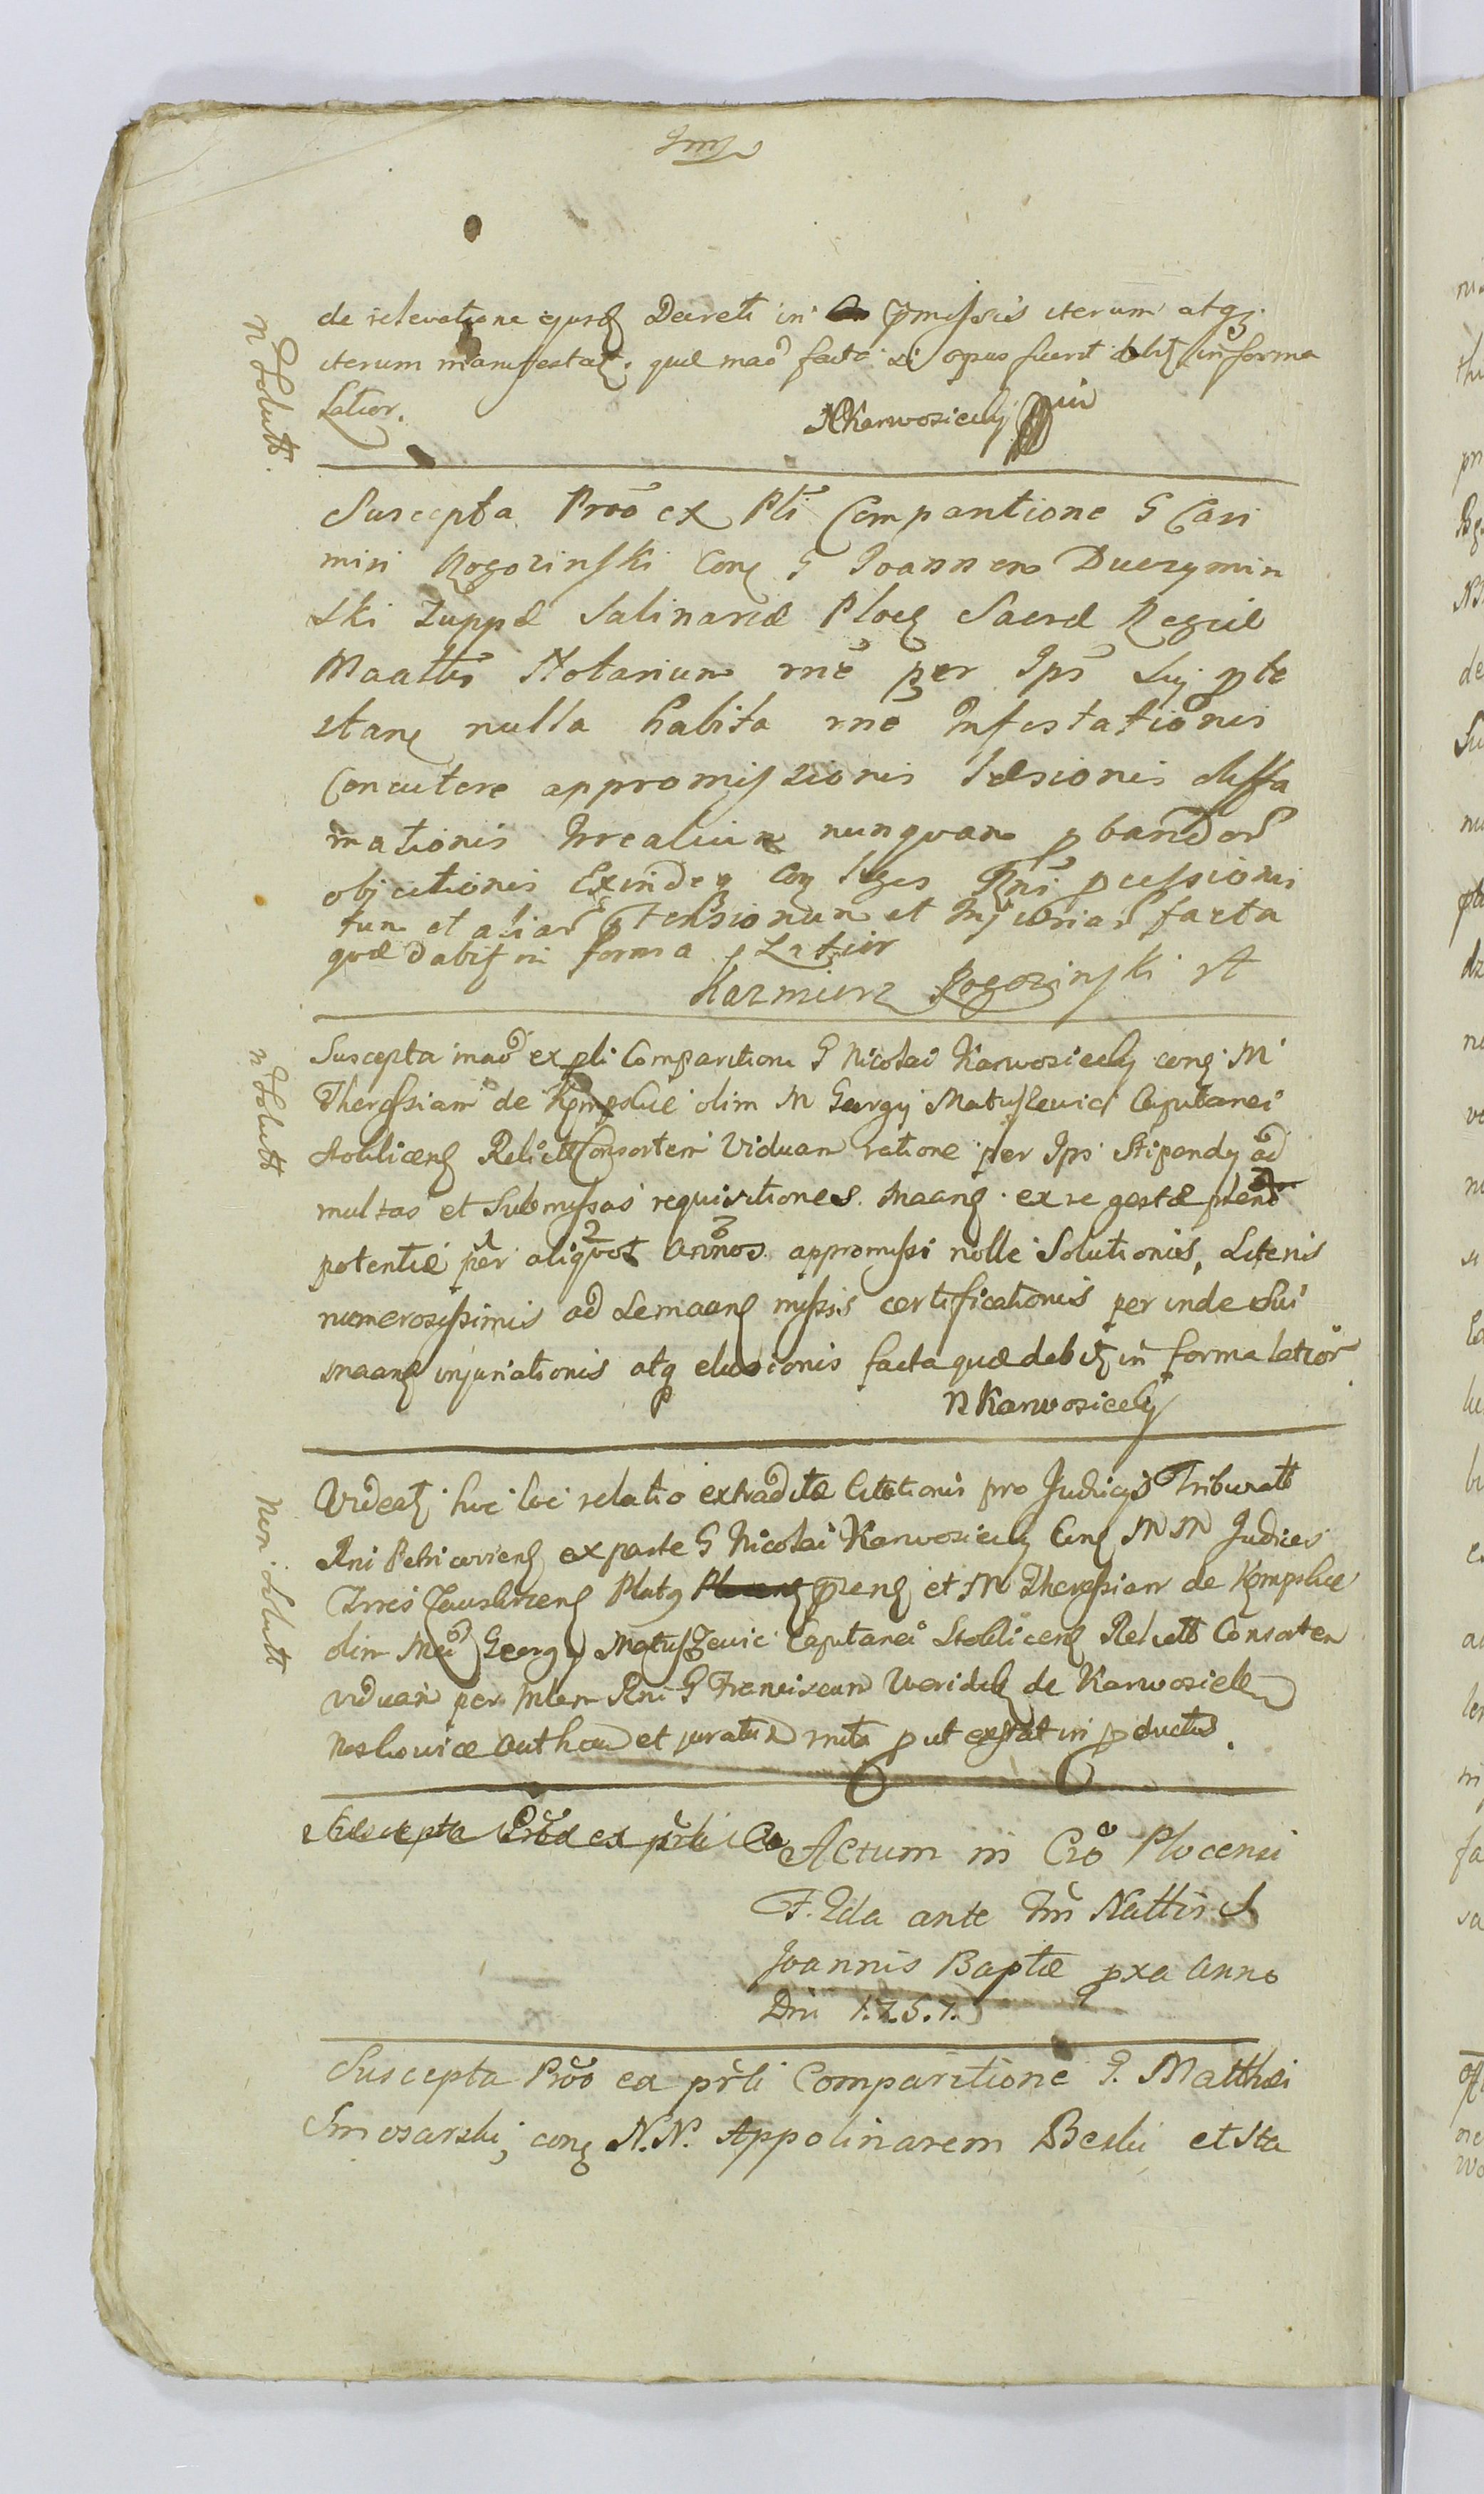 de relevatione ejusd Decreti in pmissis iterum atq
iterum manifestat; quæ mao facta si opus fuerit debit in forma
Latior.
NKarwosiecky
n Solutt.
Suscepta Proō ex Pli Comparitione G Casi
miri Rogozinski Con G Joannem Duczymin
ski Zuppæ Salinariæ Ploc Sacræ Regiæ
Maattis Notarium rnē per Ips Sui pte
stan nulla habita rnē Infestationis
Concutere appromissionis læsionis diffa
mationis Irrealium nunquam pbandor
objectionis Exinde Con leges Rni pcessioni
tum et aliar ptensionum et Injuriar facta
quæ dabit in forma Latior
Kazmierz Rogozinski
Suscepta mao ex pli Comparitione G Nicolai Karwosiecky con M
Theressiam de Kempskie olim M Georgy Matuszewici Capitanei
Stokliscen Relictt Consortem Viduam ratione per Ips Stipendy ad
multas et Submissas requisitiones Maan ex re gestæ pleno
potentiæ per aliquot Annos appromissi nolle Solutionis, Literis
numerosissimis ad Semaan missis certificationis per inde Sui
Maan injuriationis atq elusionis facta quæ debit in forma latior
N Karwosiecky
n Solutt
Videat huc loci relatio extraditæ Citationis pro Judicys Tribunatt
Rni Petricovien ex parte G Nicolai Karwosiecky Con M M Judices
Trres Palat et M Theressiam de Kempskie
olim Georgy Matuszewic Capitanei Stokliscen Relictt Consortem
viduam per Rni G Franciscum de Karwosieki
Noskowice Auth et juratum put extat in pductus.
Non Solutt
Suscepta Proō ex pli Co Actum in Crō Plocensi
F. 2da ante Fm Nattis S
Joannis Baptæ pxa Anno
Dni 1757.
Suscepta Proō ex prli Comparitione G. Matthæi
Smosarski, con N.N. Appolinarem Beski et Sta